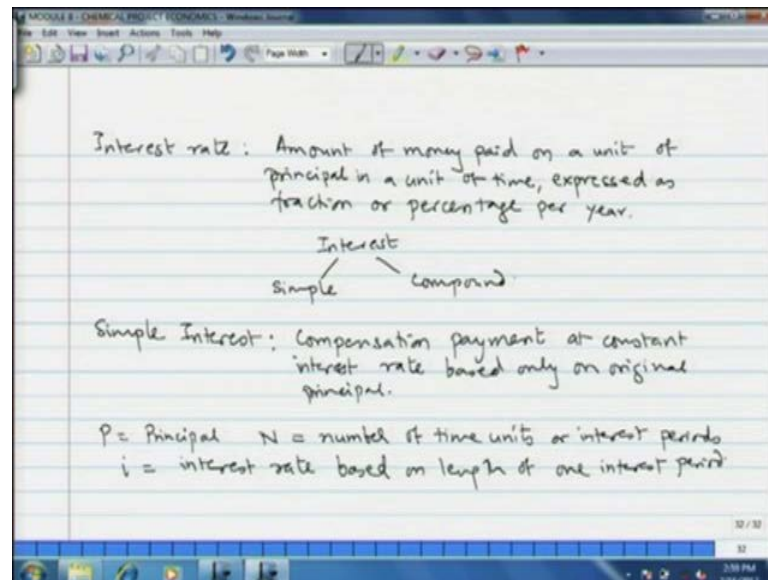 MODULE 8 - CHEMICAL PROJECT ECONOMICS - Windows Journal
File Edit View Insert Actions Tools Help
Page Width
Interest rate : Amount of money paid on a unit of
principal in a unit of time, expressed as
fraction or percentage per year.
Interest
Simple Compound
Simple Interest : Compensation payment at constant
interest rate based only on original
principal.
P = Principal N = number of time units or interest periods
i = interest rate based on length of one interest period
32 / 32
32
2:59 PM